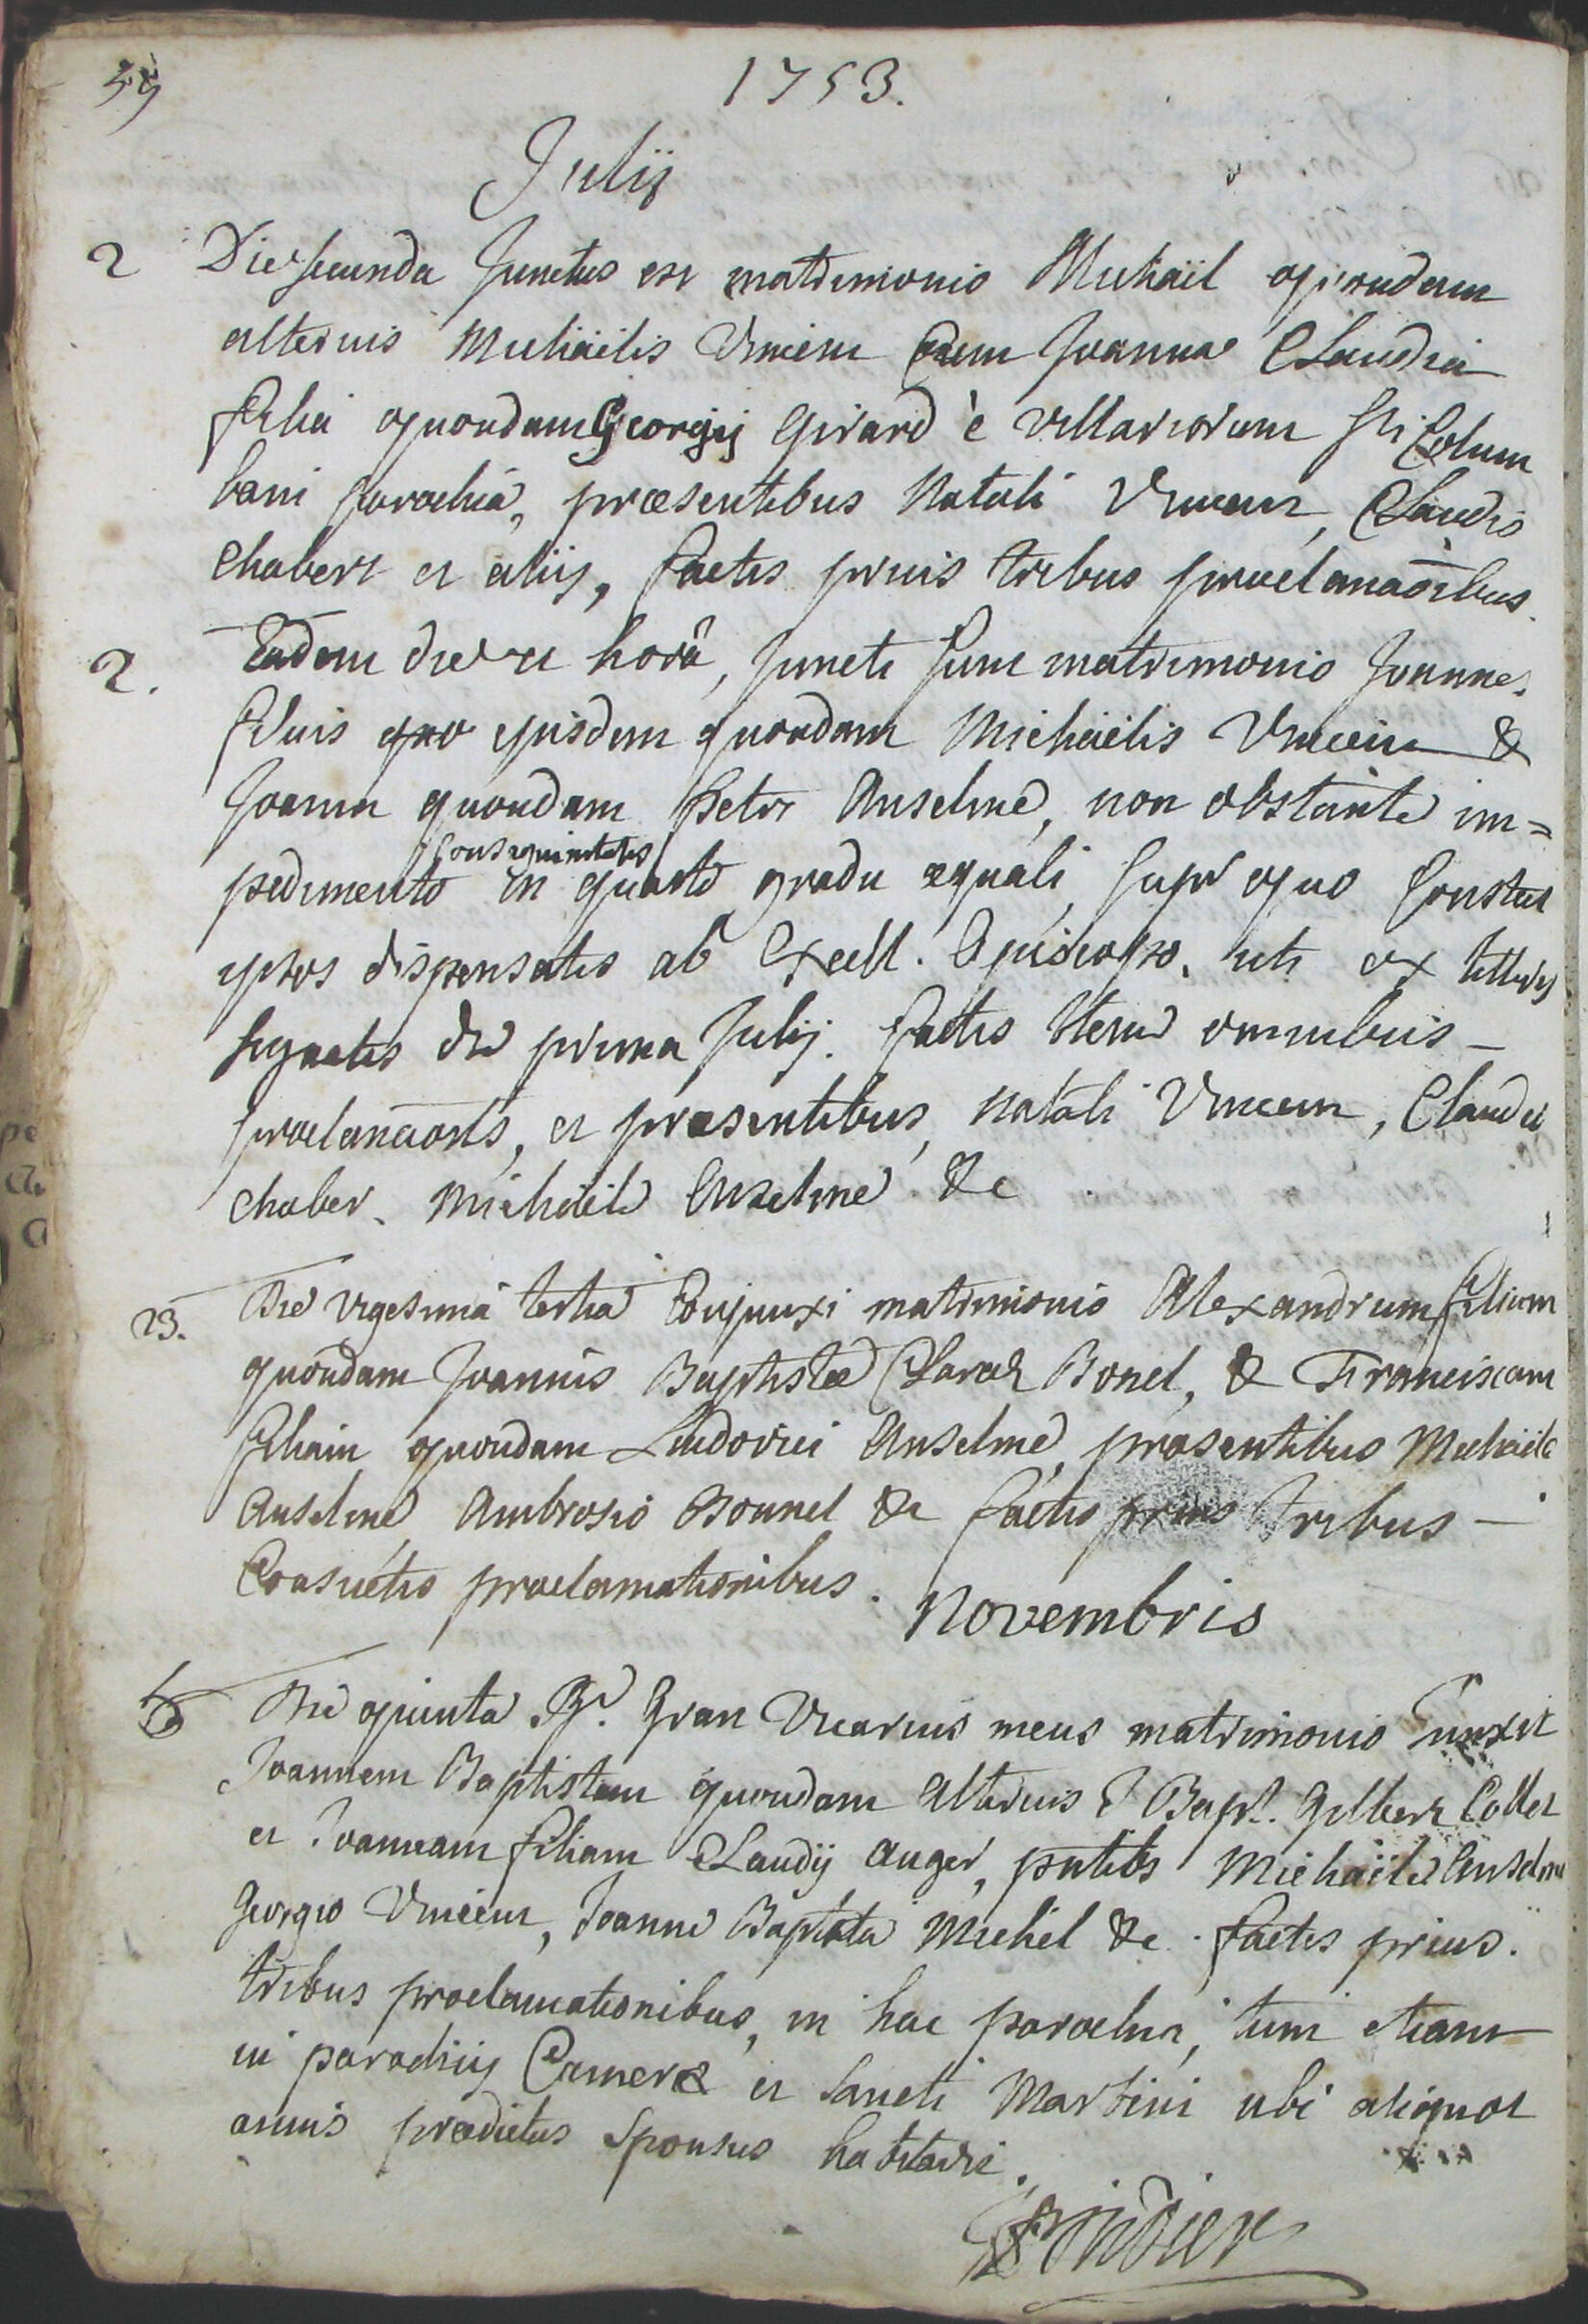 1753.
Julij
2 Die secunda Junctus est matrimonio Michaël quondam
alterius Michaëlis Vincent cum Joanna Claudia
filia quondam Georgij Girard è Villariorum Sti Colum
bani parochiâ, præsentibus Natali Vincent, Claudio
Chabert et alijs, factis prius tribus proclamaōibus.
2. Eadem die et horâ, Juncti sunt matrimonio Joannes
filius ejusdem quondam Michaëlis Vincent &
Joanna quondam Petri Anselme, non obstante im=
consaguinitatis
pedimento in quarto gradu æquali, super quo constat
ipsos dispensatos ab Excell. Episcopo. uti ex litteris
signatis die prima Julij. factis item omnibus –
proclamāonis, et præsentibus, Natali Vincent, Claudio
Chaber, Michaële Anselme &c
23. Die vigesimâ tertia Conjunxi matrimonio Alexandrum filium
quondam Joannis Baptistæ Claraz Bonel, & Franciscam
filiam quondam Ludovici Anselme, præsentibus Michaële
Anselme Ambrosio Bonnel &c factis prius tribus –
Consuetis proclamationibus.
Novembris
5 Die quinta Rd. Gran Vicarius meus matrimonio Junxit
Joannem Baptistam quondam alterius J Bapt. Gilbert Collet
et Joannam filiam Claudij Auger, pntibs Michaële Anselme
Georgio Vincent, Joanne Baptista Michel &c. factis prius
tribus proclamationibus, in hac parochia, tum etiam
in parochijs Cameræ et Sancti Martini ubi aliquot
annis prædictus sponsus habitavit.